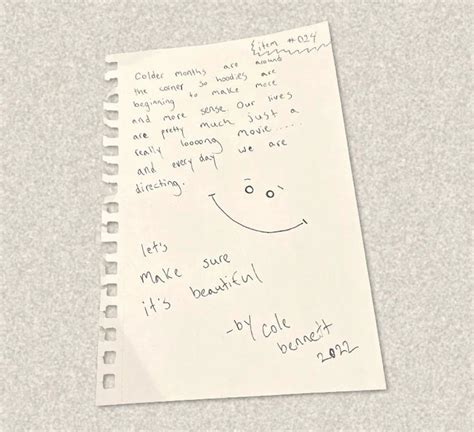 item #024
Colder months are around
the corner so hoodies are
beginning to make more
and more sense. Our lives
are pretty much just a
really loooong movie......
and every day we are
directing.
let's
make sure
it's beautiful
-by cole
bennett
2022